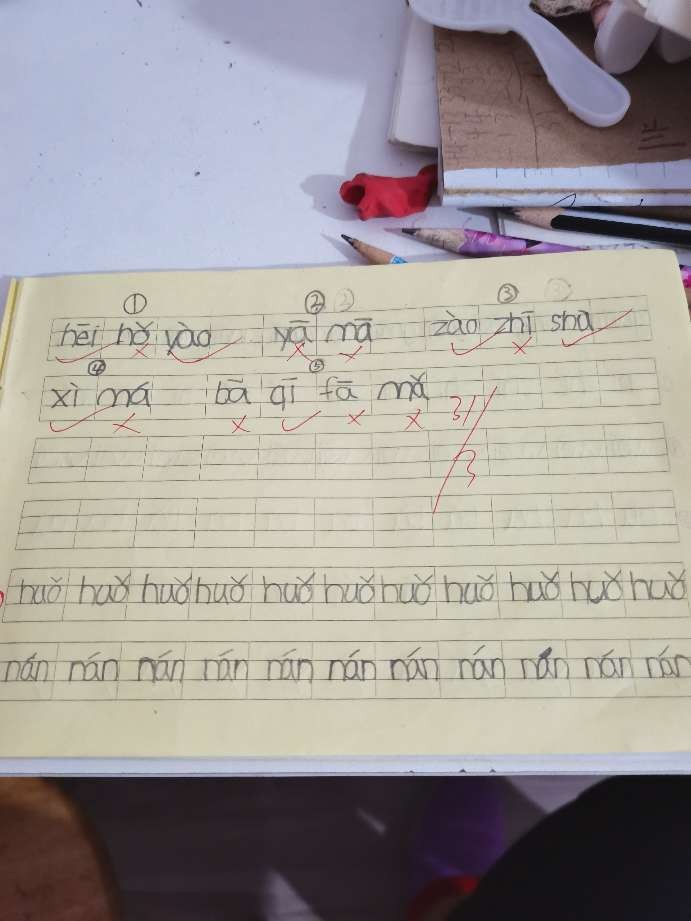 ① ② ③
hēi hǒ yào yā mā zào zhī sha
④ ⑤
xì má bā qī fā mǎ
huǒ huǒ huǒ huǒ huǒ huǒ huǒ huǒ huǒ huǒ huǒ
nán nán nán nán nán nán nán nán nán nán nán